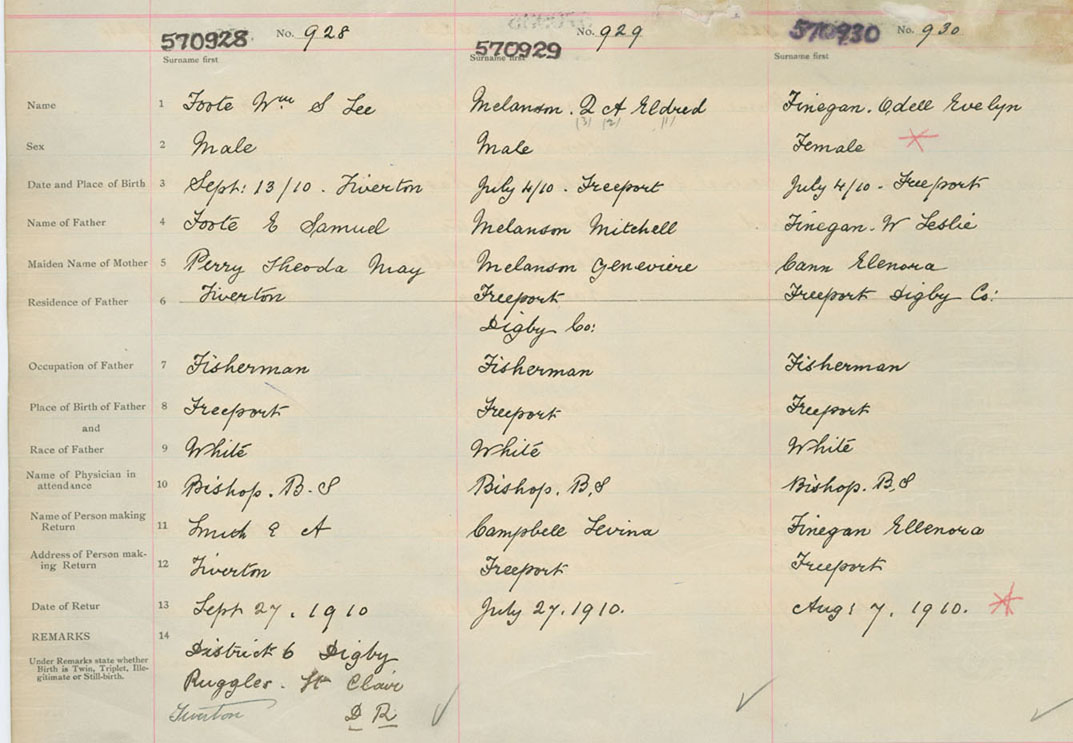 570928 No. 928 570929 No. 929 570930 No. 930
Surname first Surname first Surname first
Name 1 Foote Wm S Lee Melanson. Q A Eldred Finegan. Odell Evelyn
(3) (2) (1)
Sex 2 Male Male Female
Date and Place of Birth 3 Sept: 13/10. Tiverton July 4/10. Freeport July 4/10. Freeport
Name of Father 4 Foote E Samuel Melanson Mitchell Finegan. W Leslie
Maiden Name of Mother 5 Perry Theoda May Melanson Genevieve Cann Elenora
Residence of Father 6 Tiverton Freeport Freeport Digby Co:
Digby Co:
Occupation of Father 7 Fisherman Fisherman Fisherman
Place of Birth of Father 8 Freeport Freeport Freeport
and
Race of Father 9 White White White
Name of Physician in
attendance 10 Bishop. B. S Bishop. B.S Bishop. B.S
Name of Person making
Return 11 Smith E A Campbell Levina Finegan Ellenora
Address of Person mak-
ing Return 12 Tiverton Freeport Freeport
Date of Retur 13 Sept 27. 1910 July 27. 1910. Aug: 7. 1910.
REMARKS 14 District 6 Digby
Under Remarks state whether
Birth is Twin, Triplet, Ille-
gitimate or Still-birth.
Ruggles. St Clair
Tiverton D R